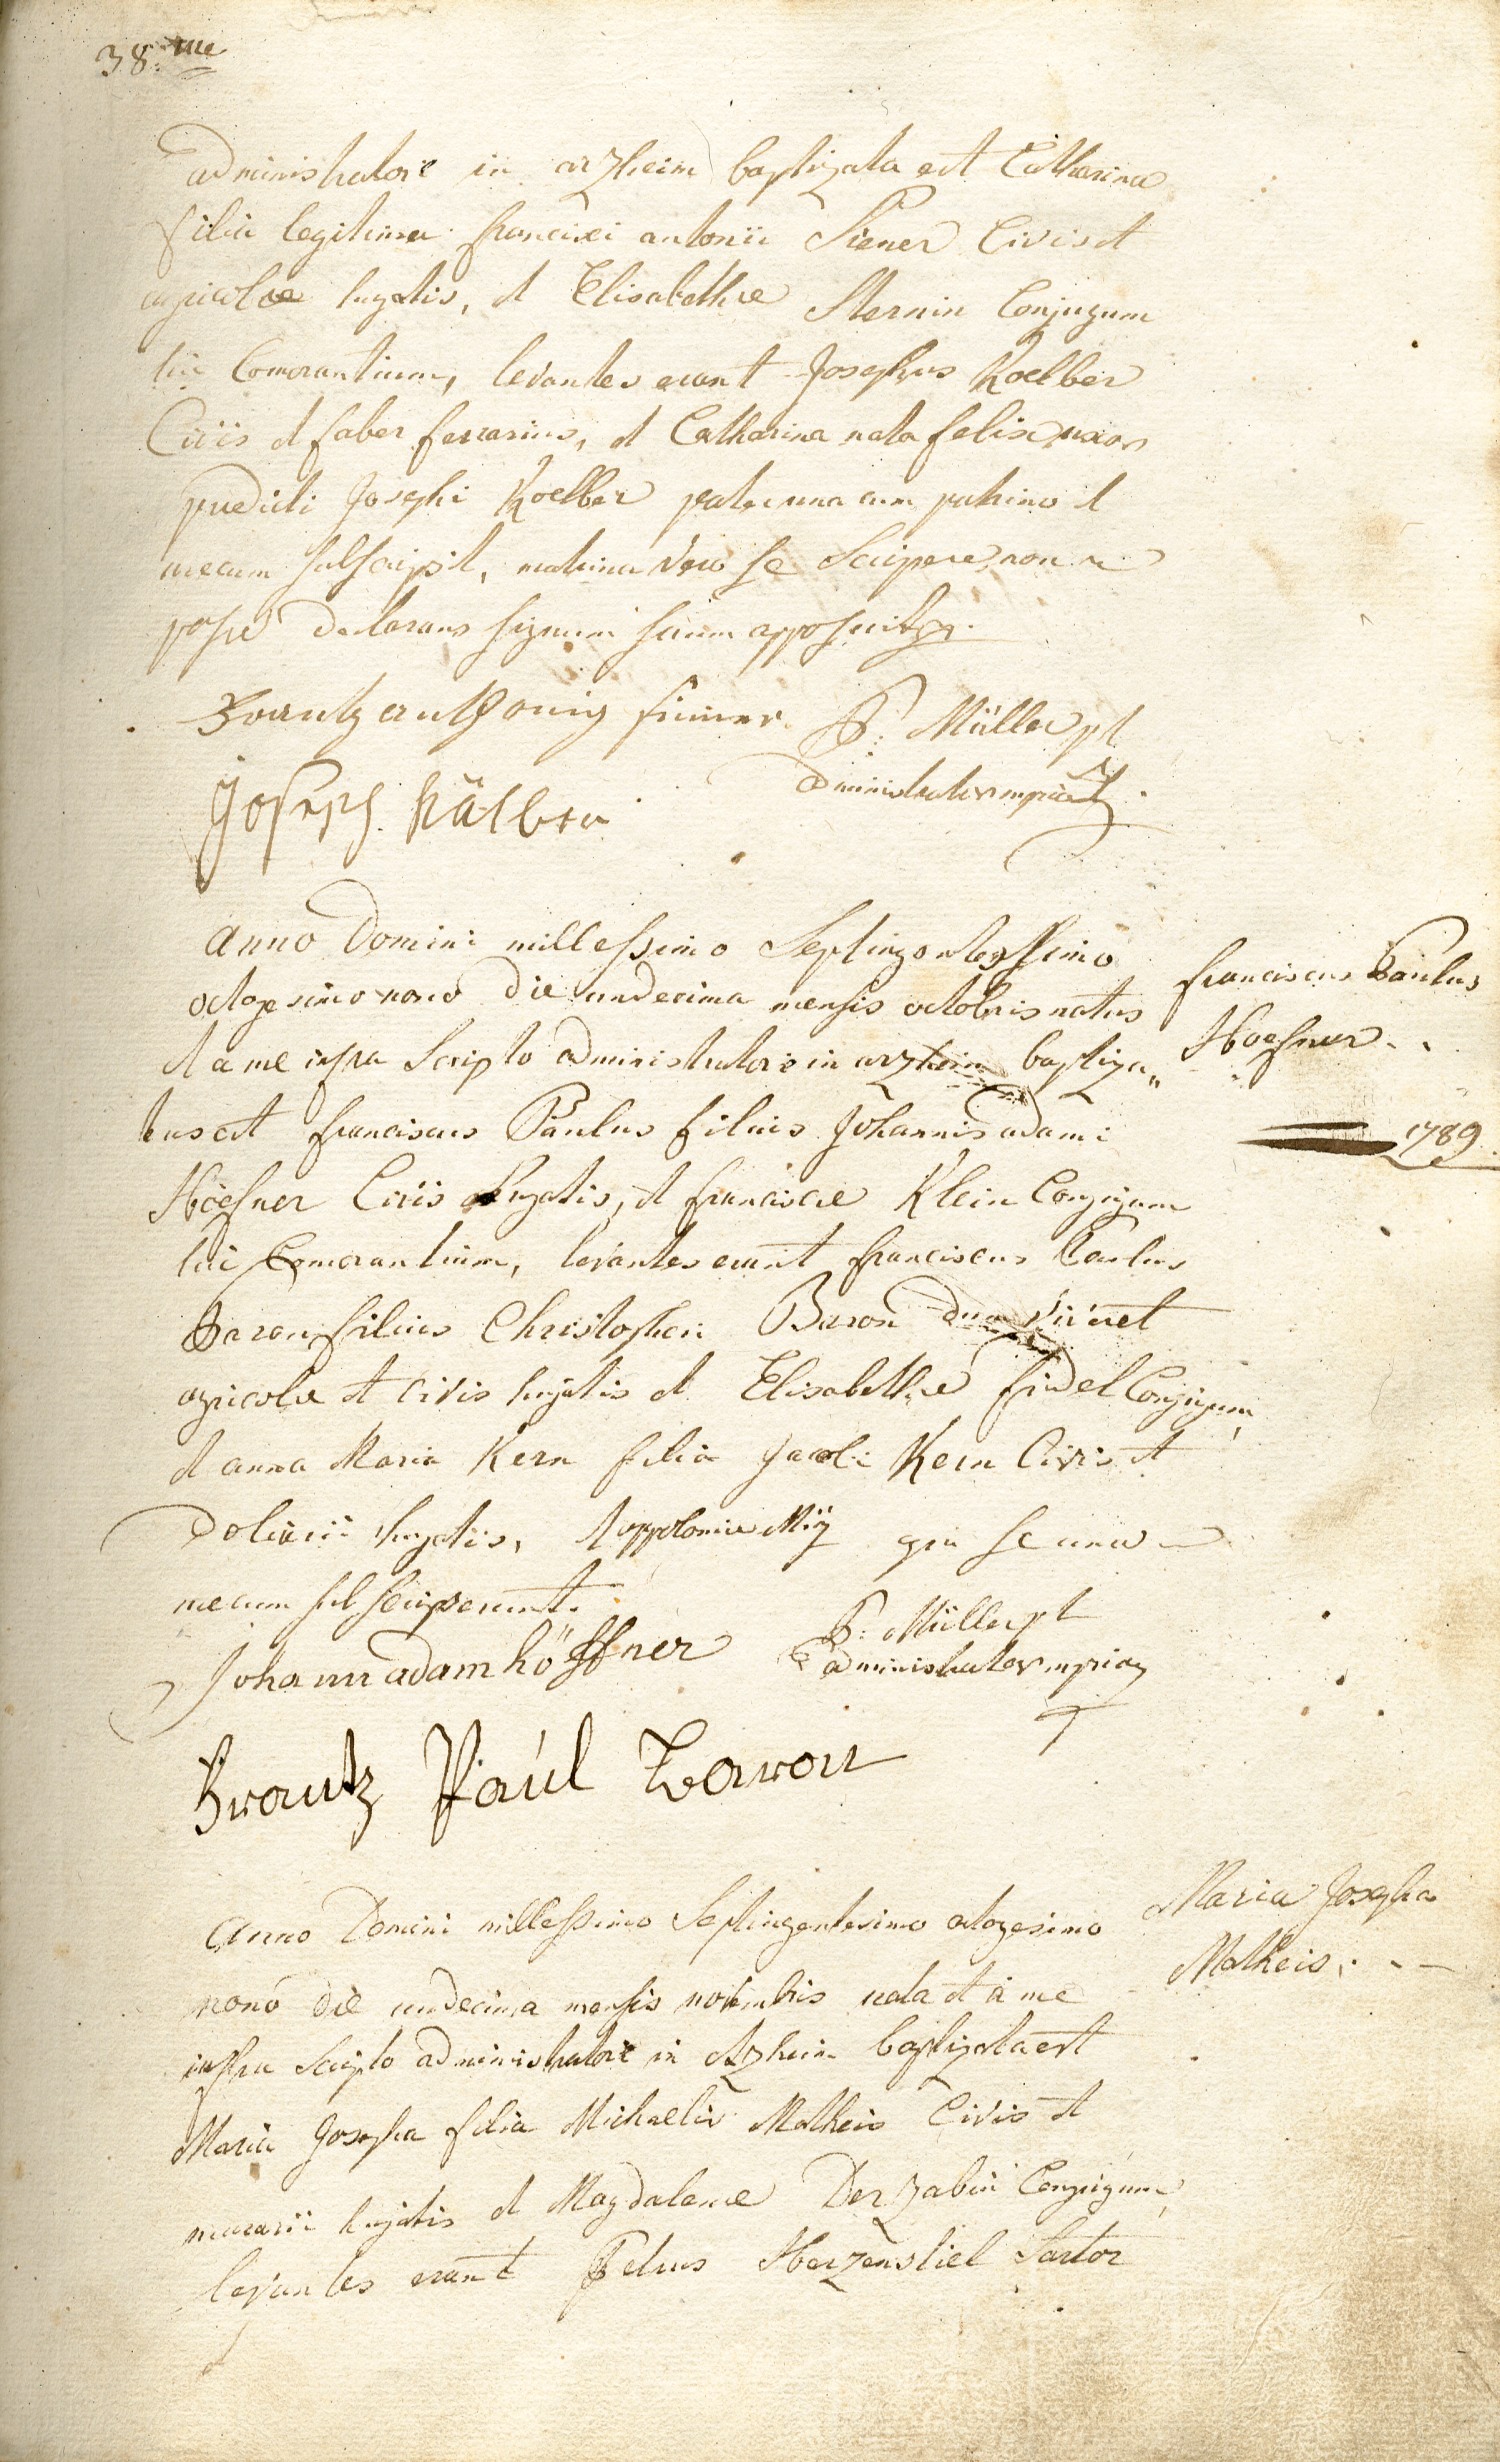 38.me
administratore in arzheim baptizata est Catharina
filia legitima francisci antonii Siener Civis et
agricolae hujatis, et Elisabethae Sternin Conjugum
hic Comorantium, levantes erant Josephus Koelber
Civis et faber ferrarius, et Catharina nata felix uxor
praedicti Josephi Koelber pater una cum patrino et
mecum subscripsit, matrina vero se scripere non
posse declarans signum suum apposuit
Frantz anthoni siener P: Müller pt
administrator mpria
Joseph Kälber
anno Domini millessimo Septingentessimo
octogesimo nono die undecima mensis octobris natus
et a me infra Scripto administratore in arzheim baptiza„
tus est franciscus Paulus filius Johannis adami
Hoefner Civis hujatis, et franciscae Klein Conjugum
hic Comorantium, levantes erant franciscus Paulus
Baron filius Christopheri Baron dum viveret
agricolae et civis hujatis et Elisabethae findel Conjugum,
et anna Maria Kern filia Jacobi Kern Civis et
Doliarii hujatis, et appoloniae qui se una
mecum subscripserunt.
franciscus Paulus
Hoefner
1789
Johann adam höffner P: Müller pt
administrator mpria
Frantz Paul Baron
Anno Domini millessimo Septingentesimo octogesimo
nono die undecima mensis novembris nata et a me
infra Scripto administratore in Arzheim baptizata est
Maria Josepha filia Michaelis Matheis Civis et
murarii hujatis et Magdalenae Derzabin Conjugum,
levantes erant Petrus Herzenstiel Sartor
Maria Josepha
Matheis